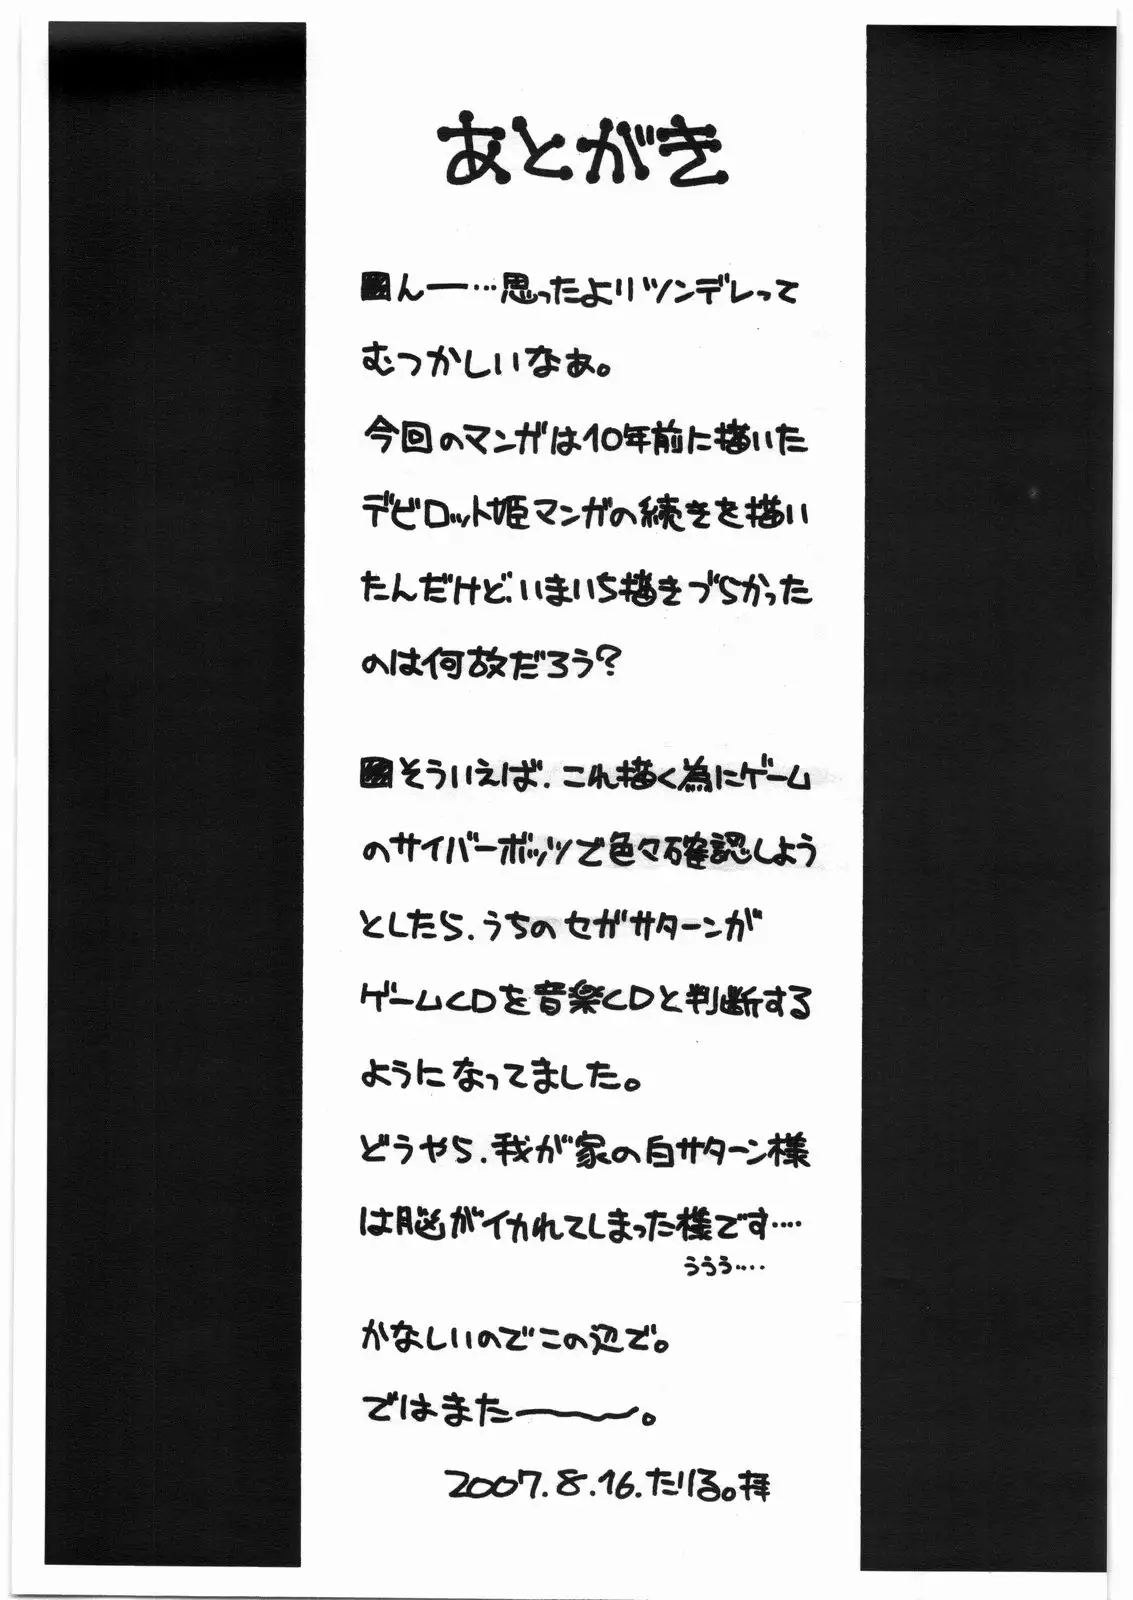 あとがき
んー…思ったよりツンデレって
むつかしいなぁ。
今回のマンガは10年前に描いた
デビロット姫マンガの続きを描い
たんだけど、いまいち描きづらかった
のは何故だろう?
そういえば、これ描く為にゲーム
のサイバーボッツで色々確認しよう
としたら、うちのセガサターンが
ゲームCDを音楽CDと判断する
ようになってました。
どうやら、我が家の白サターン様
は脳がイカれてしまった様です….
ううう….
かなしいのでこの辺で。
ではまたー〜〜。
2007.8.16.たりる。拝